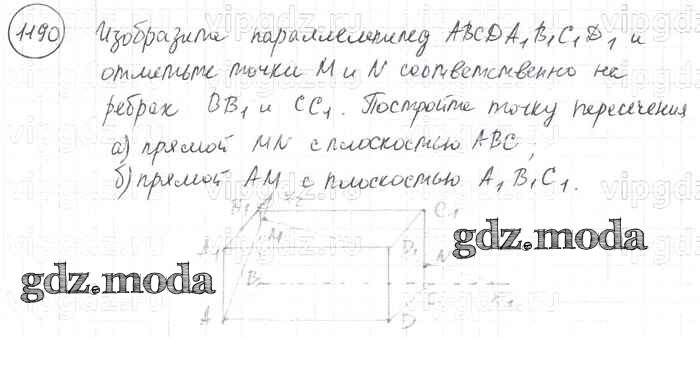 1190 Изобразите параллелепипед ABCDA₁B₁C₁D₁ и
отметьте точки M и N соответственно на
ребрах BB₁ и CC₁. Постройте точку пересечения
а) прямой MN с плоскостью ABC;
б) прямой AM с плоскостью A₁B₁C₁.
B₁ C₁
M
A₁ D₁
N
B
C
A D
gdz.moda
gdz.moda